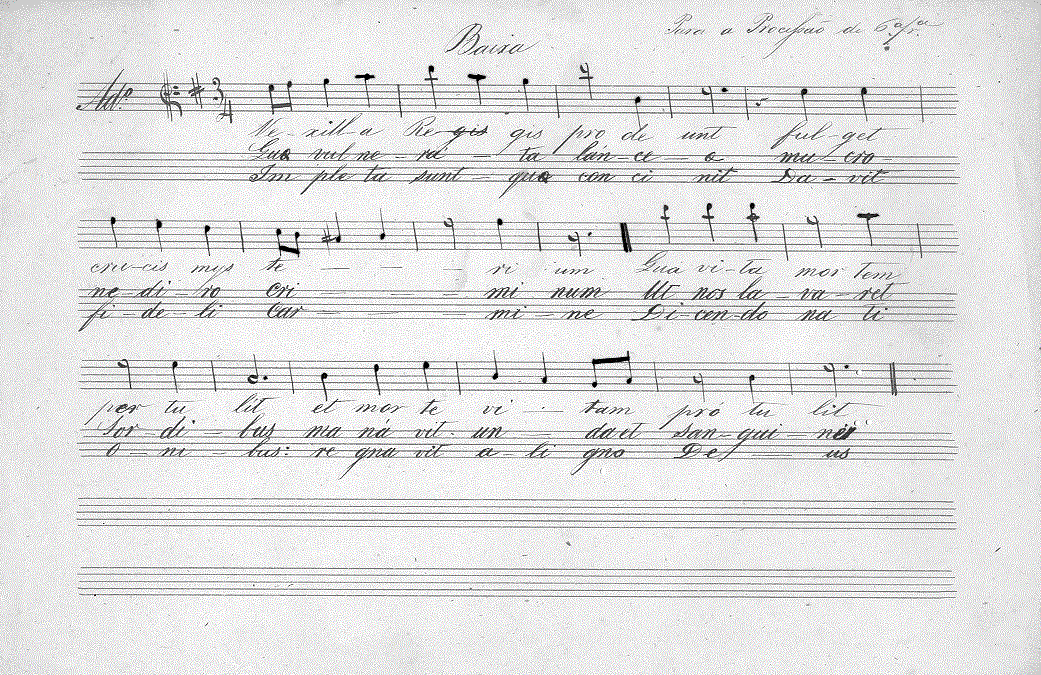 Para a Procissão de 6ª fr.ª
Baixa
Ad.º 3/4
Ve-xill-a Re-gis gis pro de unt ful-get
Qua vul ne-ra-ta lán-ce-a mu-cro-
Im ple ta sunt-qua con ci nit Da-vit
cru-cis mys te - - - ri um Qua vi-ta mor tem
ne-di-ro cri - - - mi num Ut nos la-va-ret
fi-de-li Car - - - mi-ne Di-cen-do na ti
per tu lit et mor te vi - tam pró tu lit
Sor di-bus ma ná vit un da et san-gui-ne
O-ni-bus: re gna vit a-li gno De - us